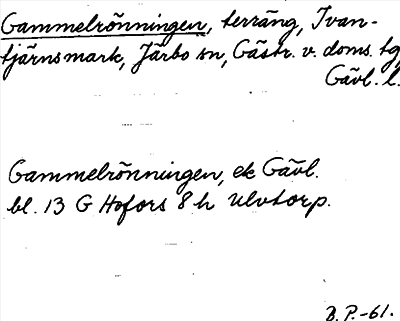 Gammelrönningen, terräng, Ivan-
tjärnsmark, Järbo sn, Gästr. v. doms. tg,
Gävl. l.
Gammelrönningen, ek Gävl.
bl. 13 G Hofors 8 h Ulvtorp.
B. P. -61.